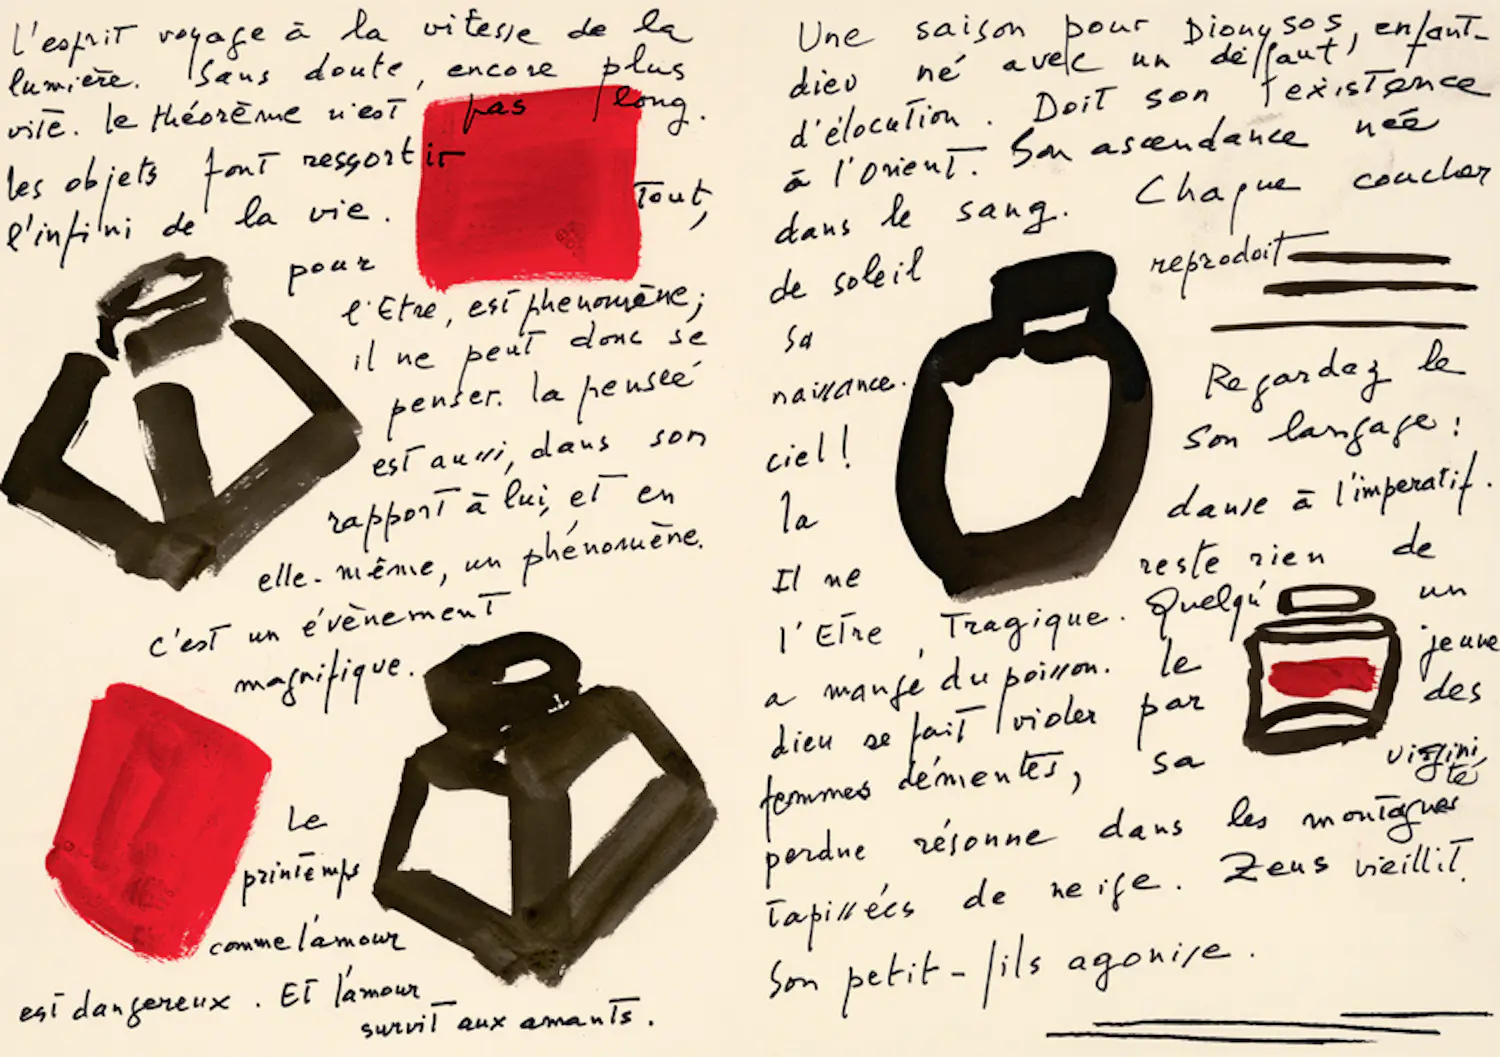 L'esprit voyage à la vitesse de la
lumière. Sans doute, encore plus
vite. le théorème n'est pas long.
les objets font ressortir
l'infini de la vie. Tout,
pour
l'Etre, est phenomène;
il ne peut donc se
penser. la penseé
est aussi, dans son
rapport à lui, et en
elle-même, un phénomène.
c'est un évènement
magnifique.
Le
printemps
comme l'amour
est dangereux. Et l'amour
survit aux amants.
Une saison pour Dionysos, enfant-
dieu né avec un deffaut
d'élocution. Doit son existence
à l'Orient. Son ascendance née
dans le sang. Chaque coucher
de soleil reprodoit
sa
naissance.
Regardez le
ciel! Son langage:
la danse à l'imperatif.
Il ne reste rien de
l'Etre Tragique. Quelqu'un
a mangé du poisson. le jeune
dieu se fait violer par des
femmes démentes, sa virginité
perdue résonne dans les montagnes
tapisseés de neige. Zeus vieillit.
Son petit-fils agonise.